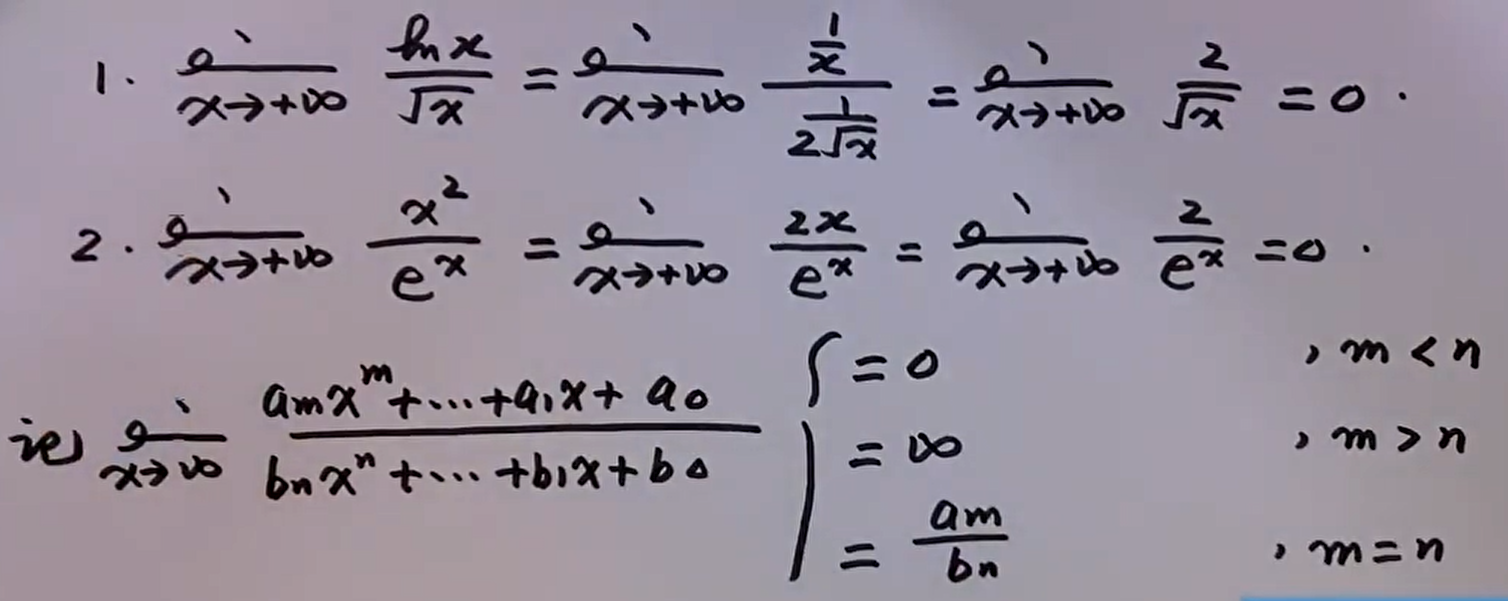 1. lim x→+∞ ln x / √x = lim x→+∞ (1/x) / (1/(2√x)) = lim x→+∞ 2/√x = 0.
2. lim x→+∞ x² / eˣ = lim x→+∞ 2x / eˣ = lim x→+∞ 2 / eˣ = 0.
记 lim x→∞ (aₘxᵐ + ⋯ + a₁x + a₀) / (bₙxⁿ + ⋯ + b₁x + b₀) { = 0 , m < n
= ∞ , m > n
= aₘ / bₙ , m = n